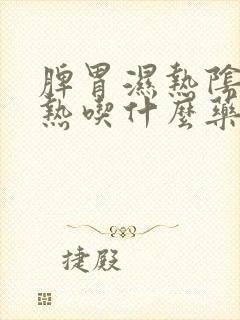 脾胃濕熱陰
熱喫什麼藥
捷殿